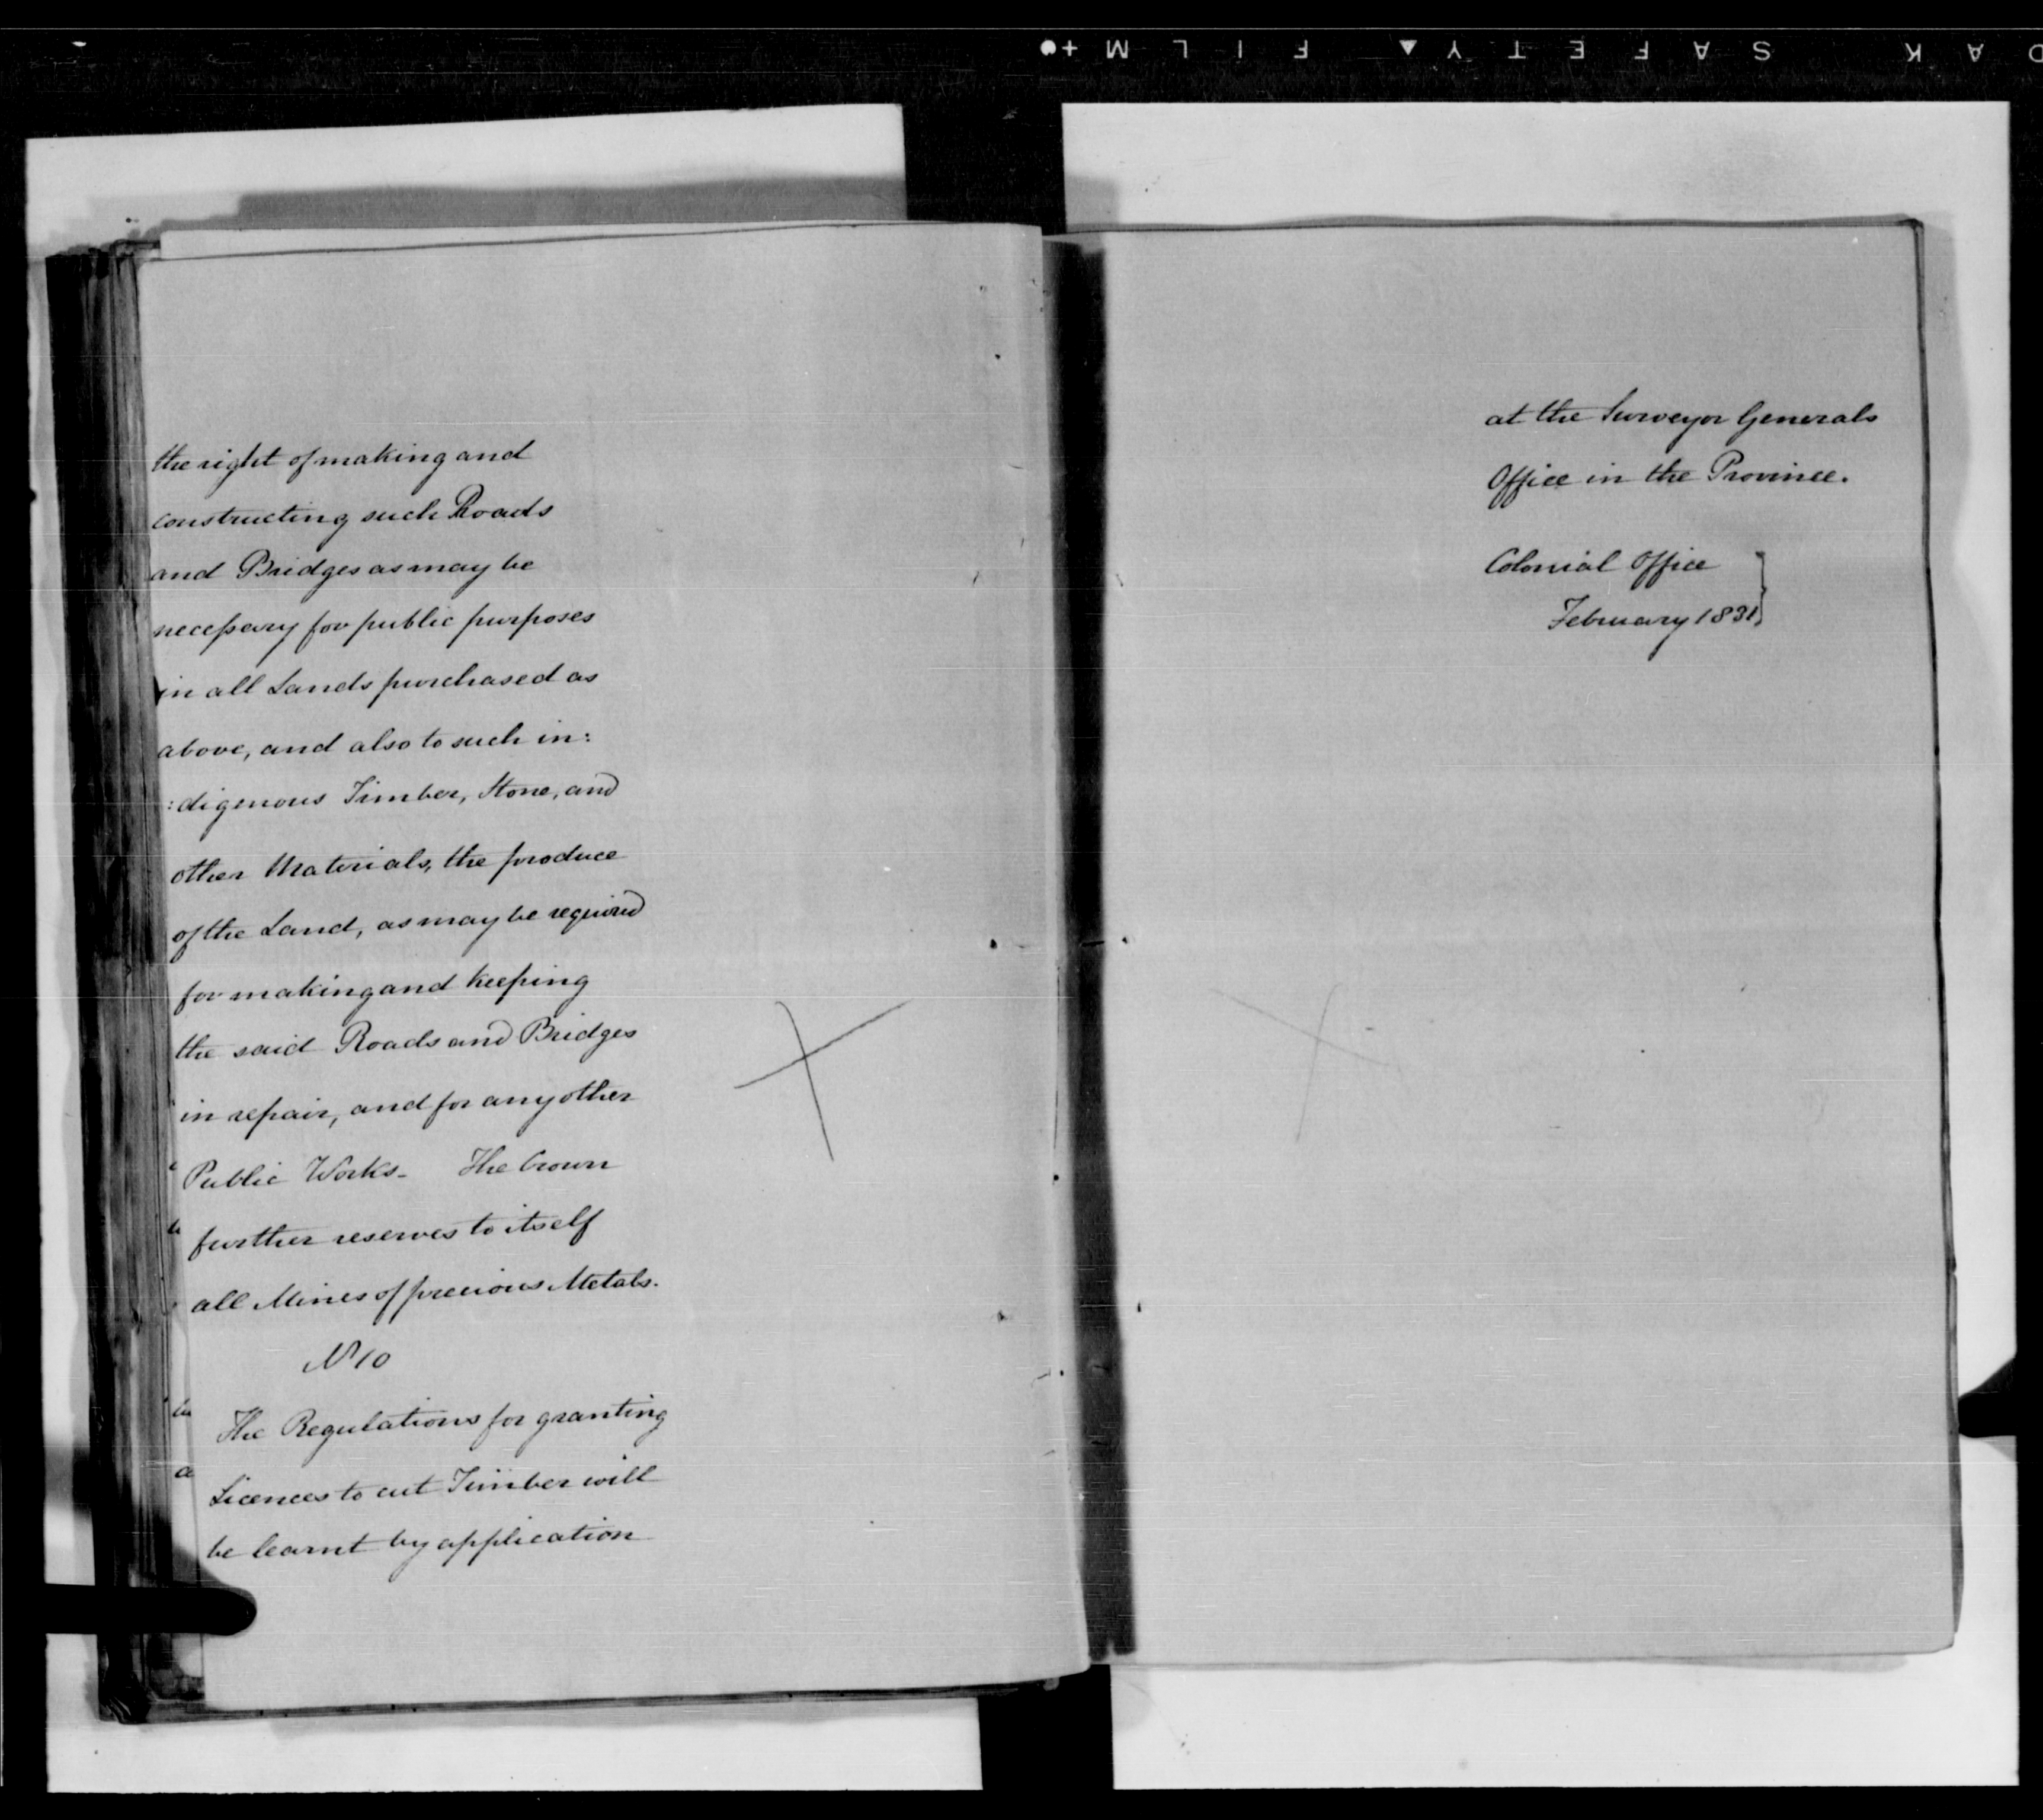 the right of making and
constructing such Roads
and Bridges as may be
necessary for public purposes
in all Lands purchased as
above, and also to such in:
:digenous Timber, Stone, and
other Materials, the produce
of the Land, as may be required
for making and keeping
the said Roads and Bridges
in repair, and for any other
Public Works. The Crown
further reserves to itself
all Mines of precious Metals.
No 10
The Regulations for granting
Licences to cut Timber will
be learnt by application
at the Surveyor Generals
Office in the Province.
Colonial Office
February 1831
SAFETY FILM